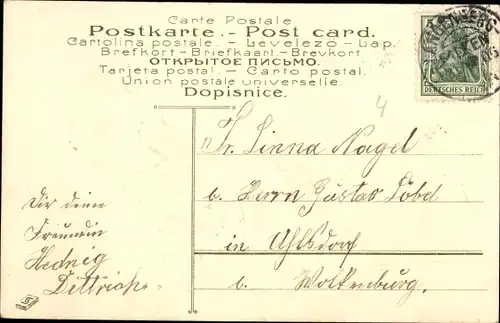 Carte Postale
Postkarte. - Post card.
Cartolina postale. - Levelezö - Lap.
Brefkort - Briefkaart - Brevkort.
ОТКРЫТОЕ ПИСЬМО.
Tarjeta postal. - Carto postal.
Union postale universelle.
Dopisnice.
5
DEUTSCHES REICH
4
Fr. Linna Nagel
b. Herrn Gustav Löbel
in Uhlsdorf
b. Wolkenburg.
Dir deine
Freundin
Hedwig
Dittrich